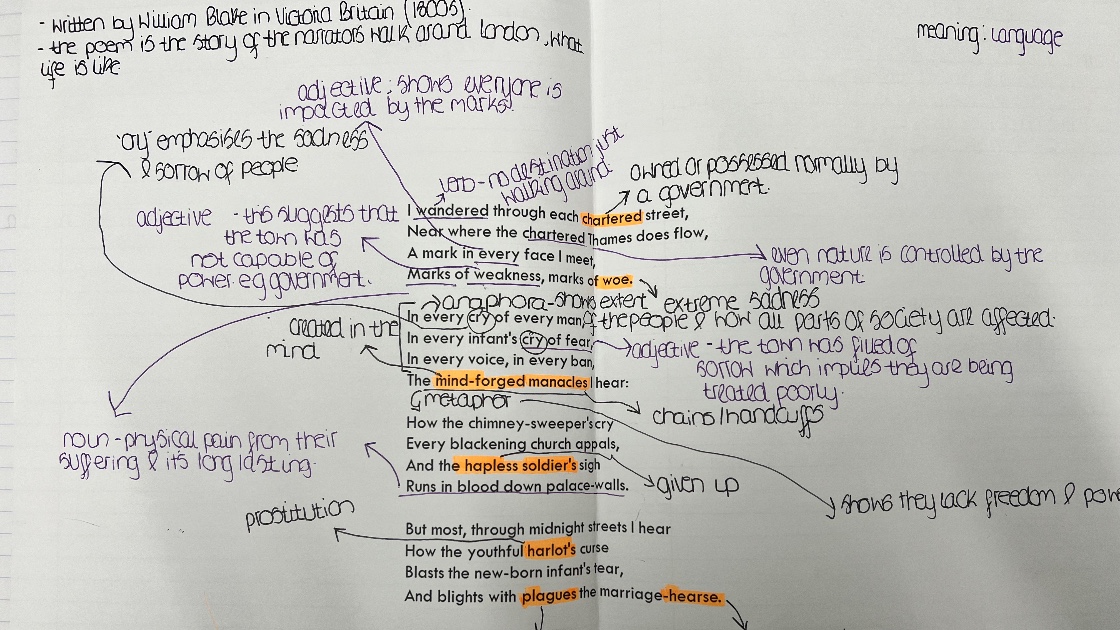 - written by William Blake in Victoria Britain (1800s).
- the poem is the story of the narrators walk around london, what
life is like
meaning: Language
adjective: shows everyone is
impacted by the marks.
'cry' emphasises the sadness
& sorrow of people
verb - no destination just
walking around.
owned or possessed normally by
a government.
adjective - this suggests that
the town has
not capable of
power. eg government.
I wandered through each chartered street,
Near where the chartered Thames does flow,
A mark in every face I meet,
Marks of weakness, marks of woe.
even nature is controlled by the
government.
extreme sadness
anaphora - shows extent
of the people & how all parts of society are affected.
In every cry of every man,
In every infant's cry of fear,
In every voice, in every ban,
The mind-forged manacles I hear:
created in the
mind
adjective - the town has filled of
sorrow which implies they are being
treated poorly.
metaphor
chains/handcuffs
How the chimney-sweeper's cry
Every blackening church appals,
And the hapless soldier's sigh
Runs in blood down palace-walls.
noun - physical pain from their
suffering & its long lasting.
given up
shows they lack freedom & pow
prostitution
But most, through midnight streets I hear
How the youthful harlot's curse
Blasts the new-born infant's tear,
And blights with plagues the marriage-hearse.